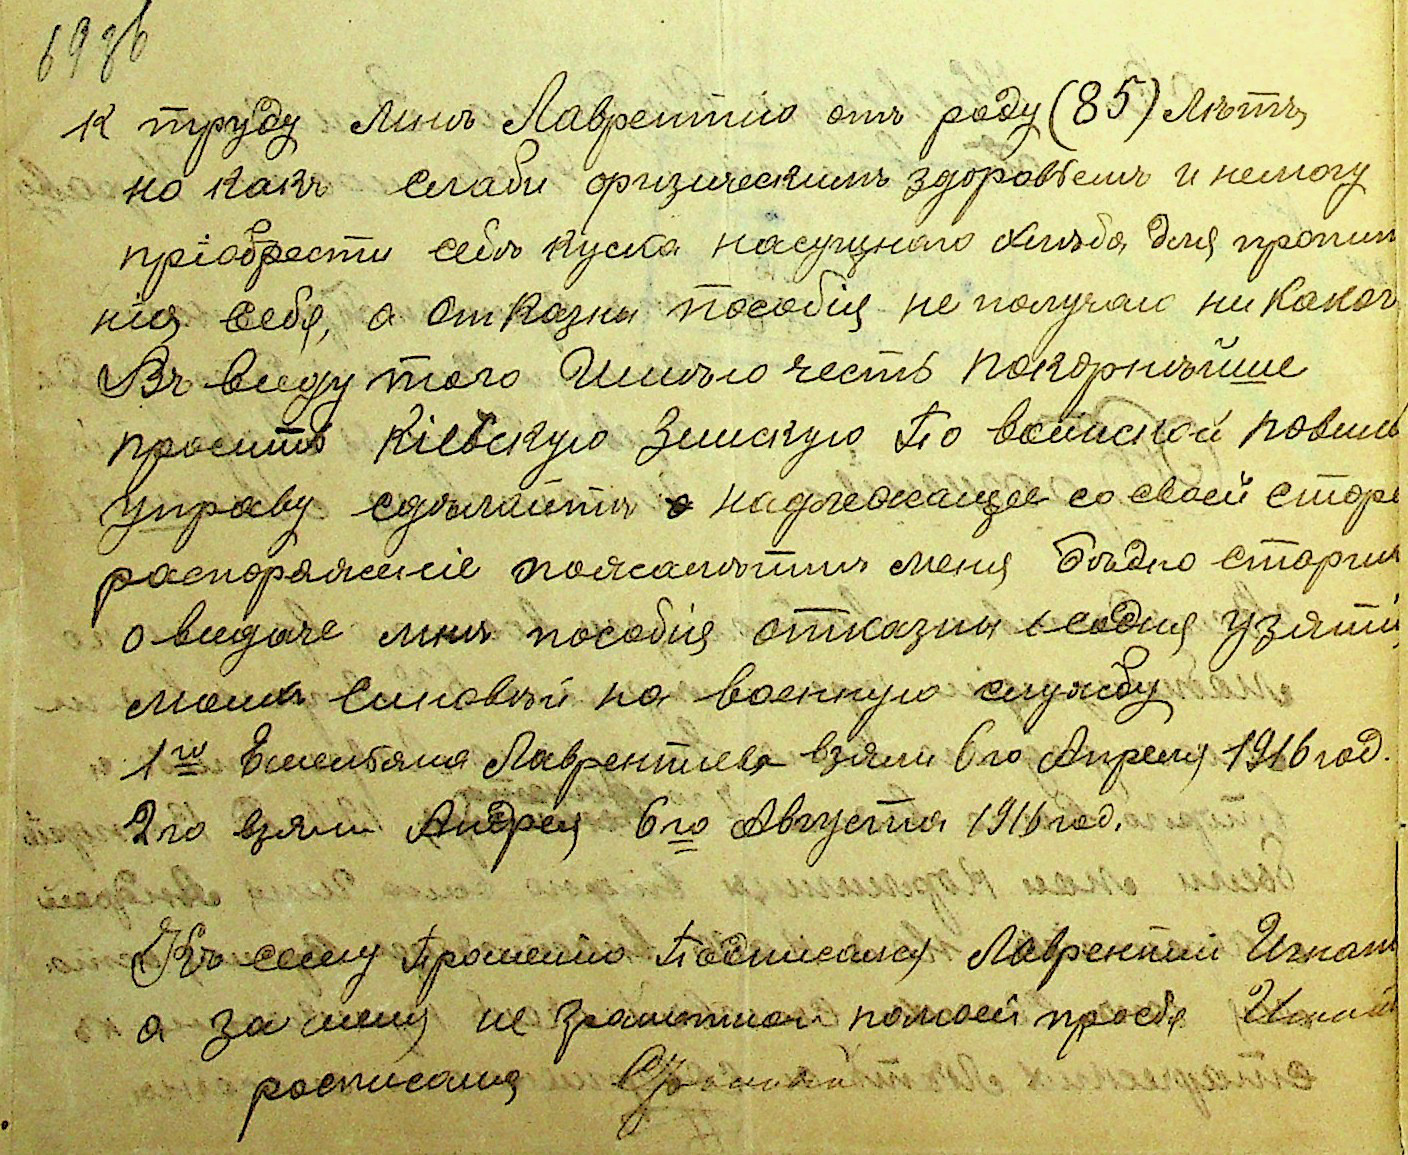 69 96
к труду мнѣ Лаврентію отъ роду (85) лѣтъ,
но какъ слаби физическимъ здоровьемъ и немогу
пріобрести себѣ куска насущнаго хлѣба для пропит
нія себя, а от Казны пособія не получаю ни каког
Въ виду того Имѣю честь покорнѣйше
просить Кіевскую Земскую По воинской повин
управу сдѣлайтѣ надлежащее со своей стор
распоряженіе пожалѣтиѣ меня бѣдно старик
о видаче мнѣ пособія отказны содня узятія
моихъ синовѣй на военную службу
1го Емельяна Лаврентиева взяли 6го Апреля 1916 год.
2го взяли Андрея 6го Августа 1916 год.
Къ сему Прошенію Подписался Лаврентий Игнат
а за меня не грамотног помоей прозбе
росписалця